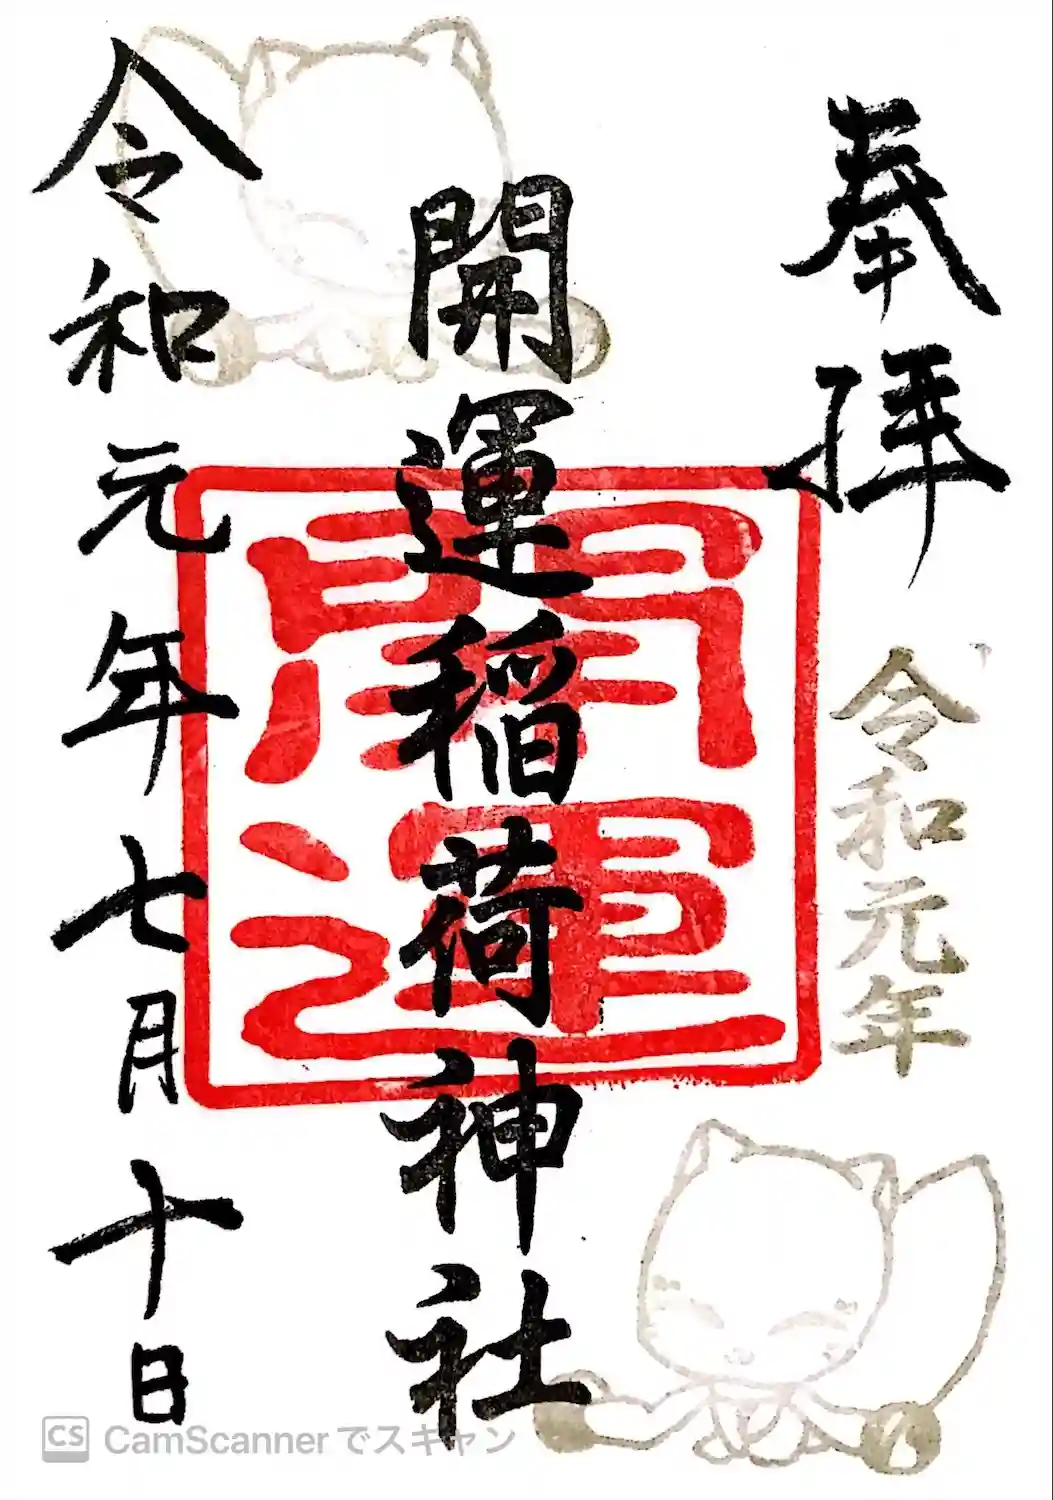 奉拝
令和元年
開運稲荷神社
開運
令和元年七月十日
CS CamScannerでスキャン